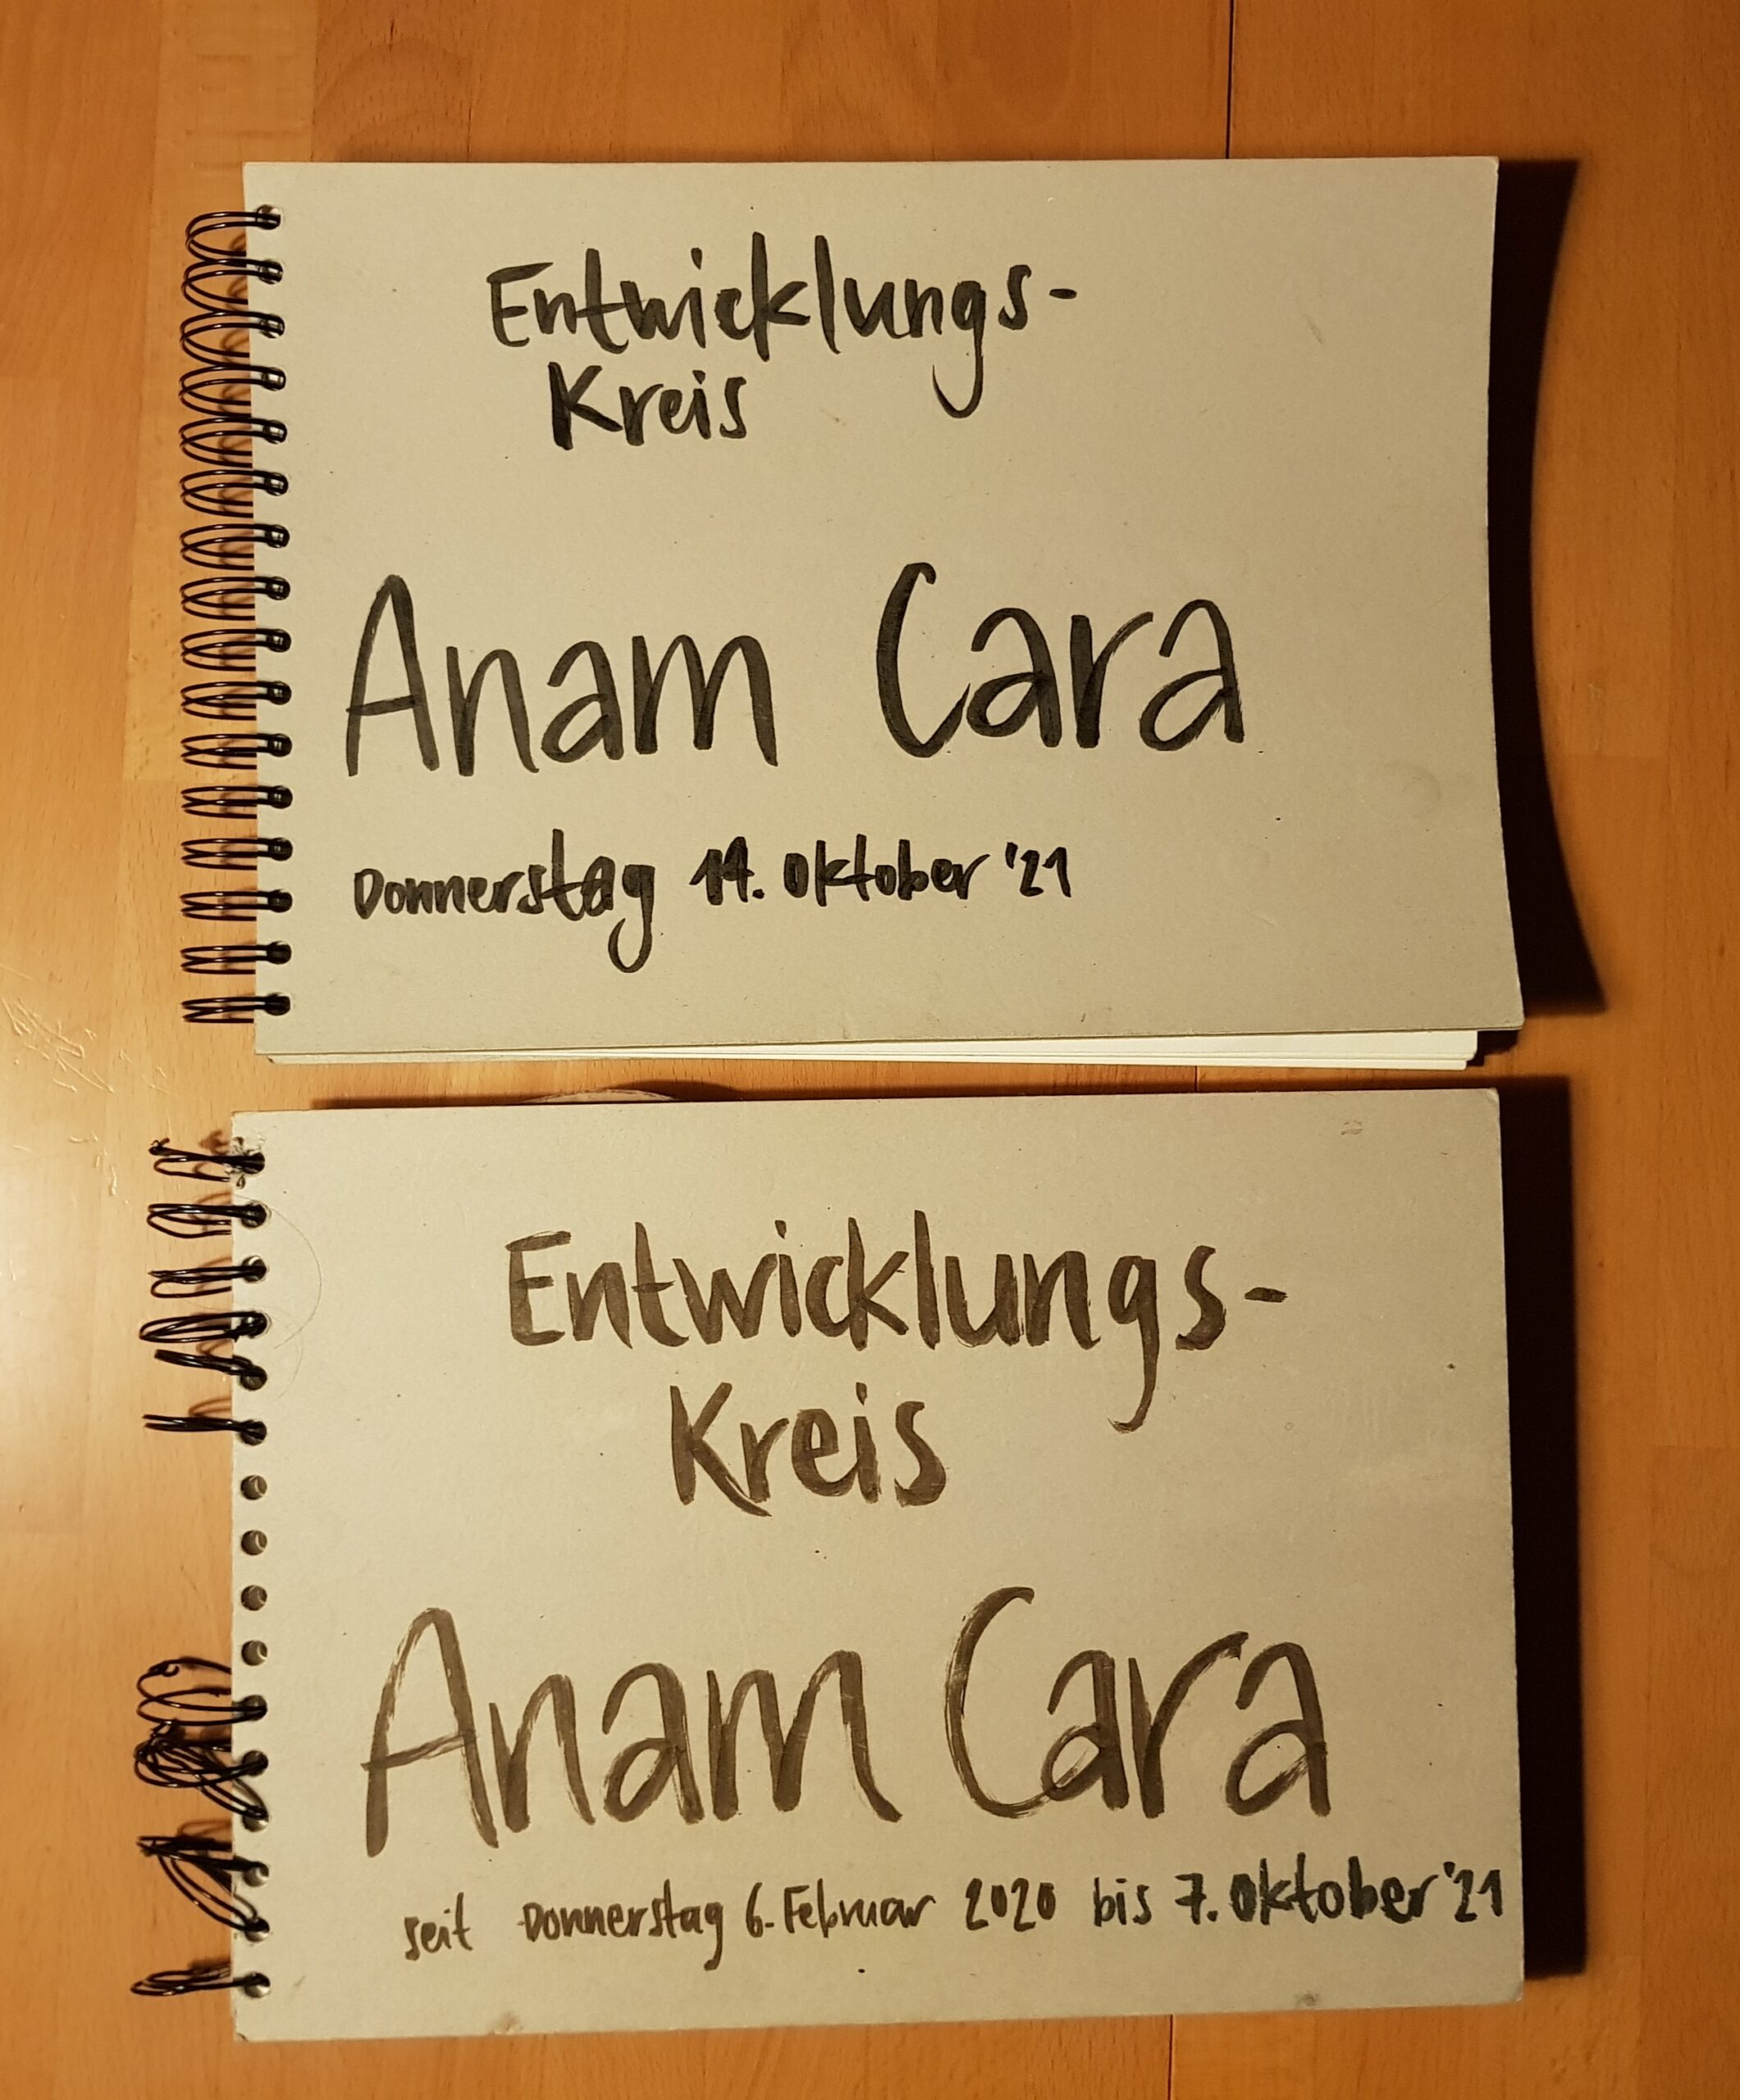 Entwicklungs-
Kreis
Anam Cara
Donnerstag 14. Oktober '21
Entwicklungs-
Kreis
Anam Cara
seit Donnerstag 6. Februar 2020 bis 7. Oktober '21